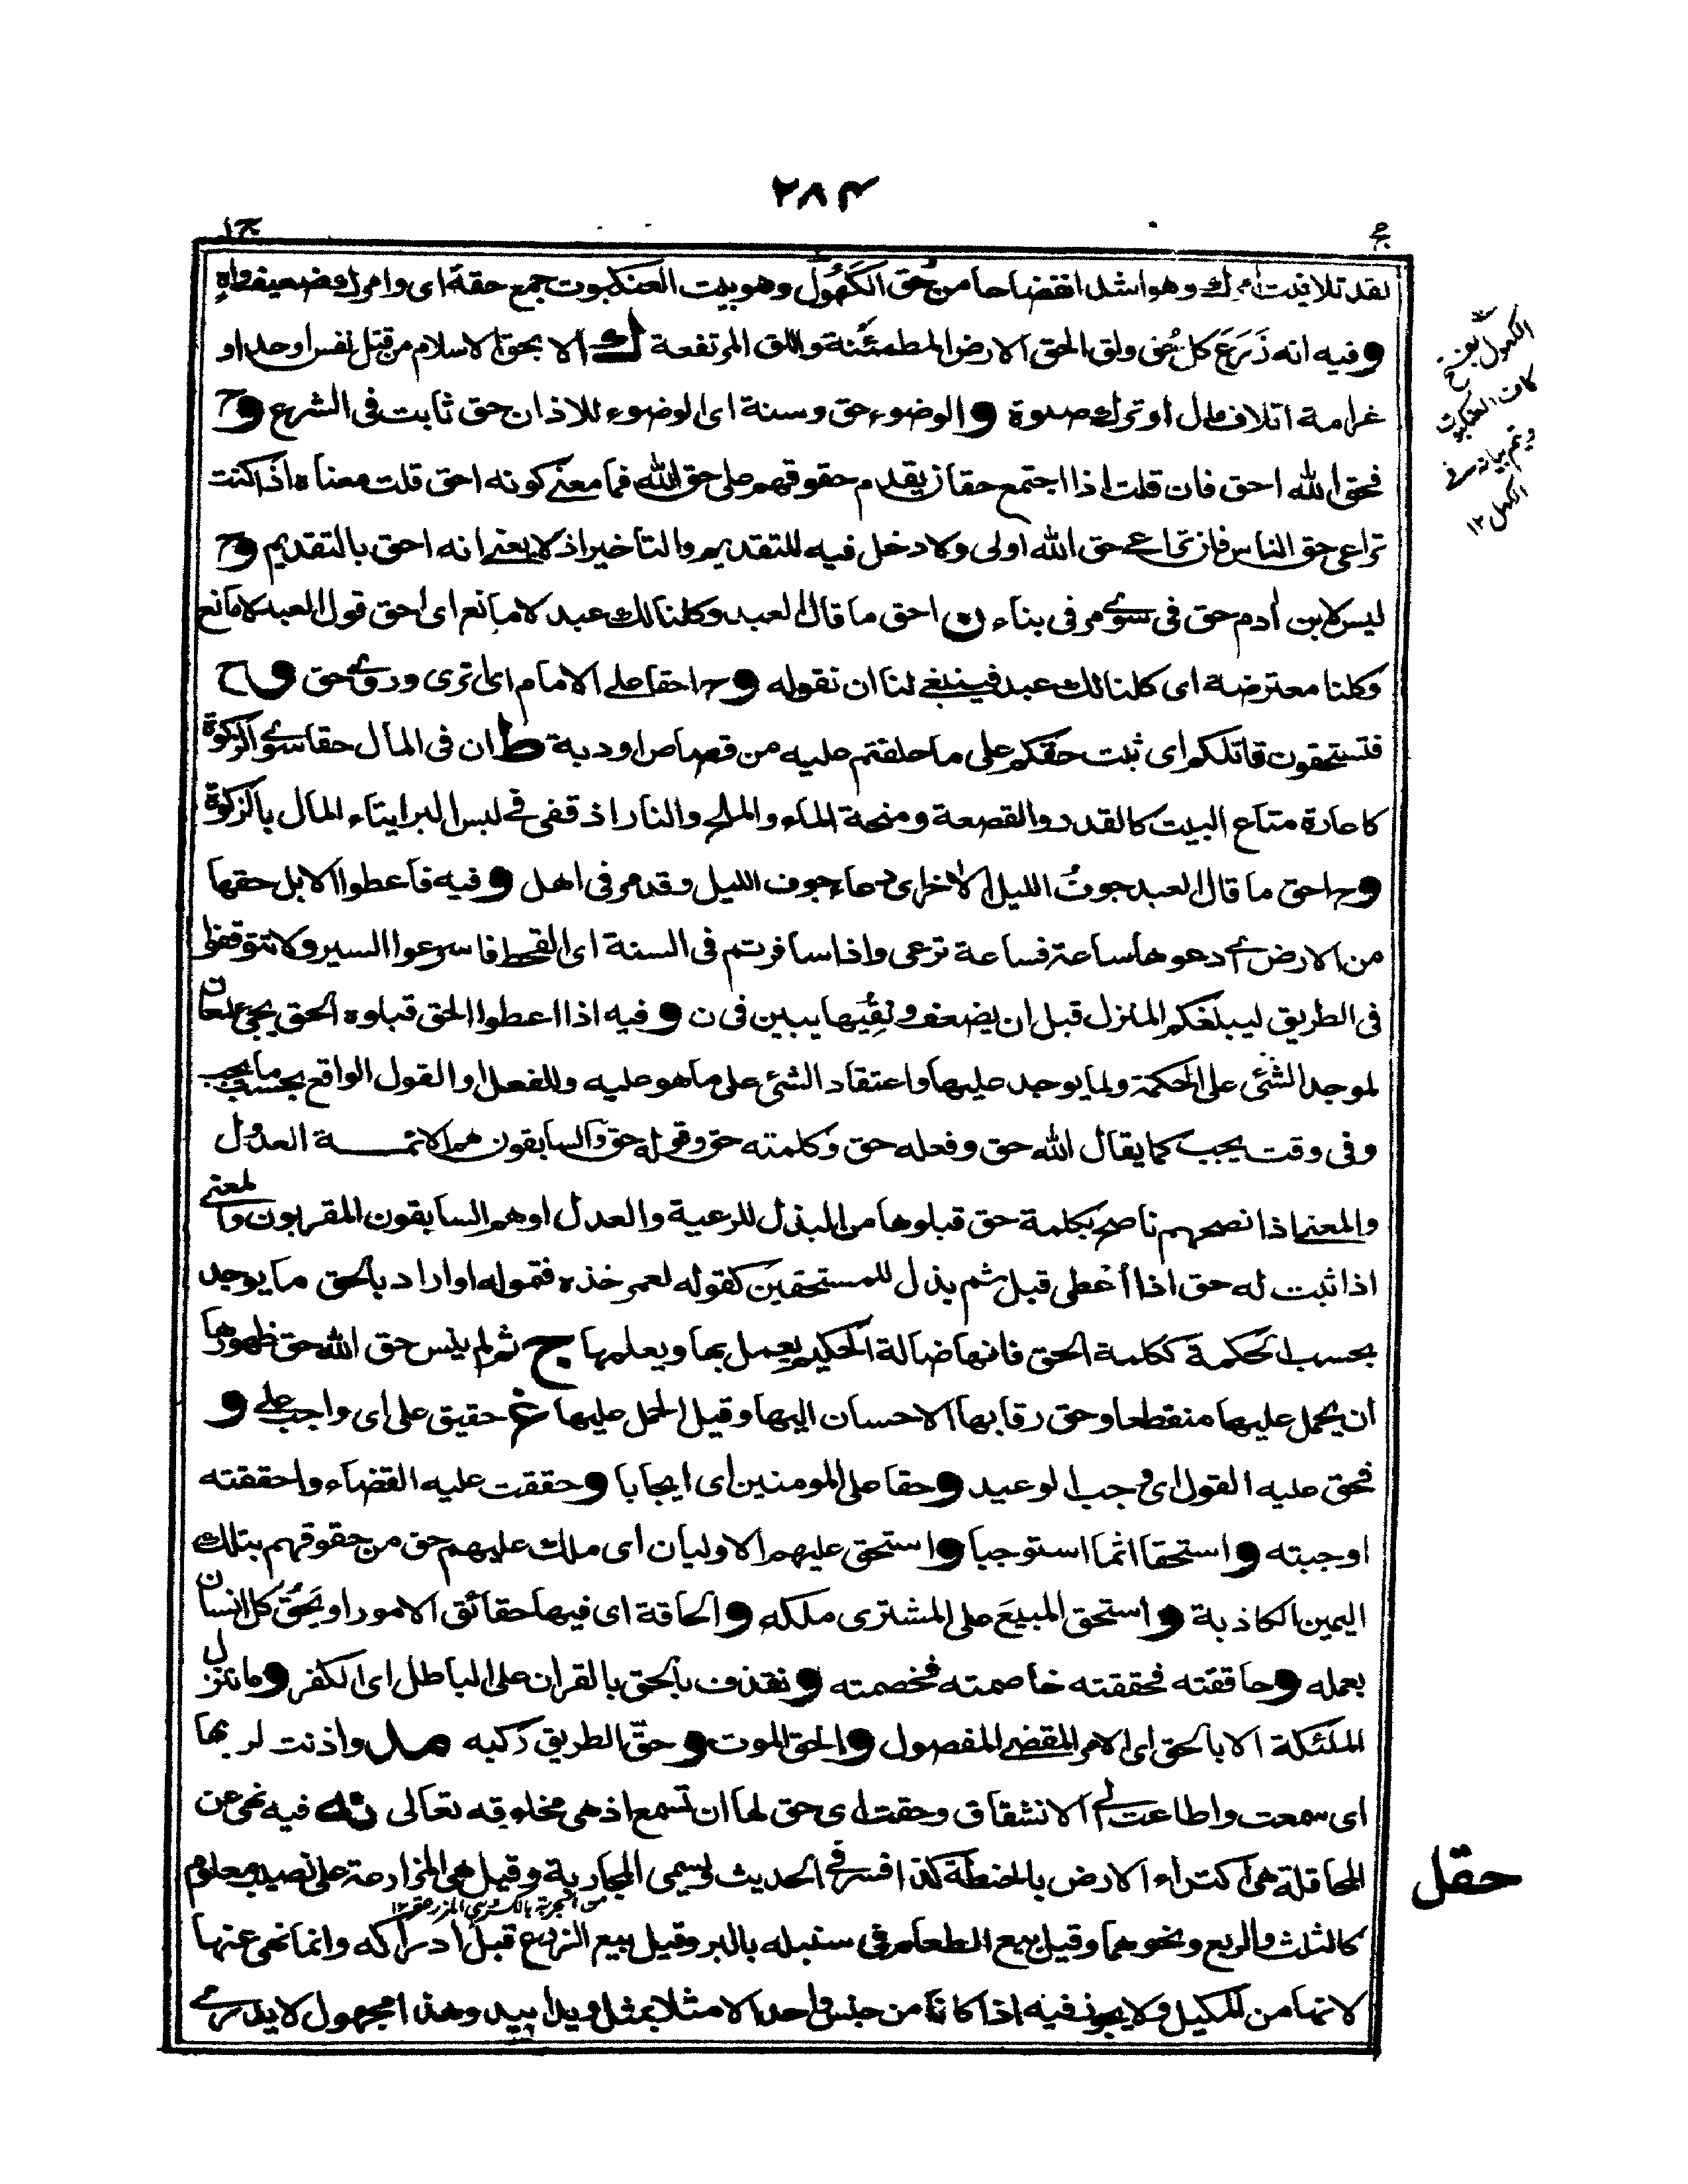 ۲۸۴
ج۱
لقد تلافيت امرك وهو اشد انفضاجا من حُق الكَهُول وهو بيت العنكبوت جمع حقة اى وامرك ضعيف واهٍ
و فيه انه زَرَعَ كل حُق ولق الحق الارض المطمئنة واللق المرتفعة ك الا بحق الاسلام من قتل نفس او حد او
غرامة اتلاف مال او ترك صلوة و الوضوء حق وسنة اى الوضوء للاذان حق ثابت فى الشرع و ح
فحق الله احق فان قلت اذا اجتمع حقان يقدم حقوقهم على حق الله فما معنى كونه احق قلت معناه اذا كنت
تراعى حق الناس فان تراعى حق الله اولى ولا دخل فيه للتقديم والتأخير اذ لا يعنى انه احق بالتقديم و ح
ليس لابن أدم حق فى سوى مر فى بناء ن احق ما قال العبد وكلنا لك عبد لا مانع اى احق قول العبد لا مانع
وكلنا معترضة اى كلنا لك عبد فينبغى لنا ان نقوله و ح احقا على الامام اى اترى وروى حق و ح
فتستحقون قاتلكم اى ثبت حقكم على ما حلفتم عليه من قصاص او دية ط ان فى المال حقا سوى الزكوة
كاعارة متاع البيت كالقدر والقصعة ومنحة الماء والملح والنار اذ قفى فى ليس البر ايتاء المال بالزكوة
و ح احق ما قال العبد جوف الليل الاخر اى دعاء جوف الليل وقد مر فى اهل و فيه فأعطوا الابل حقها
من الارض اى دعوها ساعة فساعة ترعى واذا سافرتم فى السنة اى القحط فاسرعوا السير ولا تتوقفوا
فى الطريق ليبلغكم المنزل قبل ان يضعف ونِقيُها يبين فى ن و فيه اذا اعطوا الحق قبلوه الحق يجئ لمعان
لموجد الشئ على الحكمة ولما يوجد عليها واعتقاد الشئ على ما هو عليه وللفعل او القول الواقع بحسب ما يجب
وفى وقت يجب كما يقال الله حق وفعله حق وكلمته حق وقوله حق والسابقون هم الائمة العدول
والمعنى اذا نصحهم ناصح بكلمة حق قبلوها من البذل للرعية والعدل او هم السابقون المقربون والمعنى
اذا ثبت له حق اذا أعطى قبل ثم بذل للمستحقين كقوله لعمر خذه فتموله او اراد بالحق ما يوجد
بحسب الحكمة ككلمة الحق فانها ضالة الحكيم يعمل بها ويعلمها ج ثم لم ينس حق الله حق ظهورها
ان يحمل عليها منقطعا وحق رقابها الاحسان اليها وقيل الحمل عليها غ حقيق على اى واجب على و
فحق عليه القول اى وجب الوعيد و حقا على المومنين اى ايجابا و حققت عليه القضاء واحققته
اوجبته و استحقا اثما استوجبا و استحق عليهم الاوليان اى ملك عليهم حق من حقوقهم بتلك
اليمين الكاذبة و استحق المبيعَ على المشترى ملكه و الحاقة اى فيها حقائق الامور او يَحُقُّ كل انسان
بعمله و حاققته فحققته خاصمته فخصمته و نقذف بالحق بالقران على الباطل اى الكفر و ما ننزل
الملئكة الا بالحق اى الامر المقضى المفصول و الحق الموت و حقّ الطريق ركبه مد واذنت لربها
اى سمعت واطاعت له الانشقاق وحقت اى حق لها ان تسمع اذ هى مخلوقه تعالى نه فيه نهى عن
المحاقلة هى اكتراء الارض بالحنطة كذا فسر فى الحديث ويسمى المجاربة وقيل هى المزارعة على نصيب معلوم
كالثلث والربع ونحوهما وقيل بيع الطعام فى سنبله بالبر وقيل بيع الزرع قبل ادراكه وانما نهى عنها
لانها من المكيل ولا يجوز فيه اذا كانا من جنس واحد الا مثلا بمثل ويدا بيد وهذا مجهول لا يدرى
كان العنكبوت
حقل